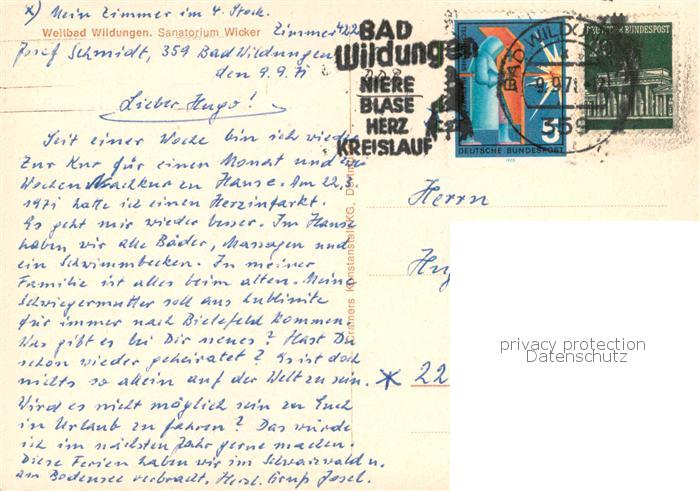 x) Mein Zimmer im 4. Stock.
Weltbad Wildungen. Sanatorium Wicker Zimmer 422
Josef Schmidt, 359 Bad Wildungen
den 9.9.71
Lieber Hugo!
Seit einer Woche bin ich wieder
zur Kur für einen Monat und
Wochen Nachkur zu Hause. Am 22.3.
1971 hatte ich einen Herzinfarkt.
Es geht mir wieder besser. Im Hause
haben wir alle Bäder, Massagen und
ein Schwimmbecken. In meiner
Familie ist alles beim alten. Meine
Schwiegermutter soll aus
für immer nach Bielefeld kommen.
Was gibt es bei Dir neues? Hast Du
schon wieder geheiratet? Es ist doch
nichts so allein auf der Welt zu sein.
Wird es nicht möglich sein zu Euch
in Urlaub zu fahren? Das würde
ich im nächsten Jahr gerne machen.
Diese Ferien haben wir im Schwarzwald u.
am Bodensee verbracht. Herzl. Gruß Josef.
Cramers Kunstanstalt KG, Dortmund
BAD
Wildungen
NIERE
BLASE
HERZ
KREISLAUF
5
DEUTSCHE BUNDESPOST
BAD WILDUNGEN
9.9.71
359
DEUTSCHE BUNDESPOST
Herrn
* 22
privacy protection
Datenschutz